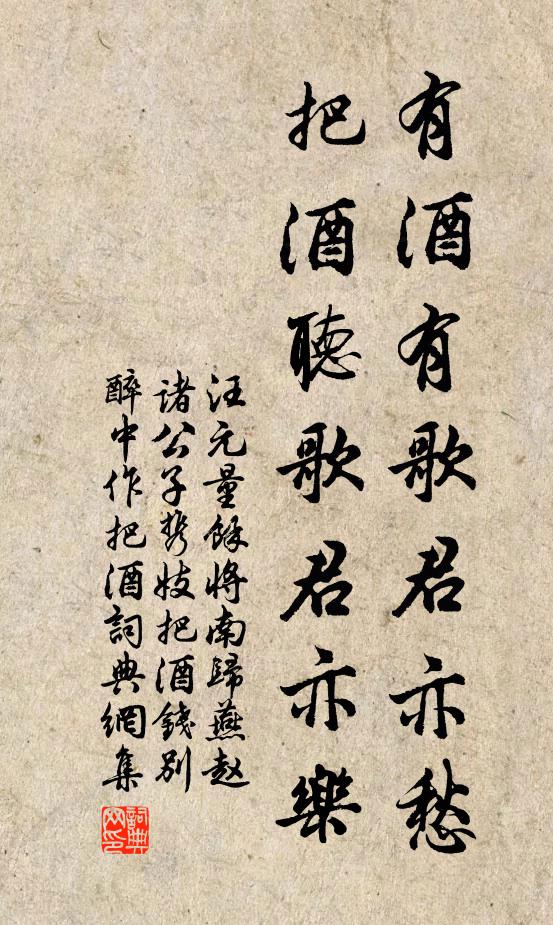 有酒有歌君亦愁
把酒聽歌君亦樂
汪元量餘將南歸燕赵
諸公子携妓把酒錢別
醉中作把酒詞典網集
詞典网印